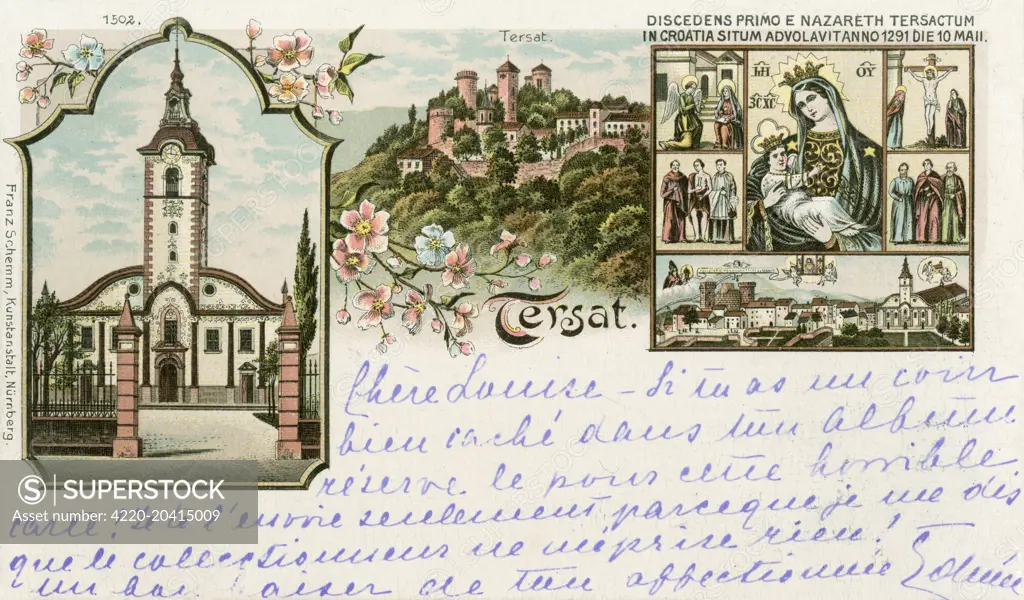 1502.
Tersat.
DISCEDENS PRIMO E NAZARETH TERSACTUM
IN CROATIA SITUM ADVOLAVIT ANNO 1291 DIE 10 MAII.
Tersat.
Franz Schemm, Kunstanstalt, Nürnberg.
Chère Louise – Si tu as un coin
bien caché dans ton album
réserve le pour cette horrible
carte. Je t'envoie seulement, parceque je me dis
que le collectionneur ne méprise rien!
un bon baiser de ton affectionnée
SUPERSTOCK
Asset number: 4220-20415009